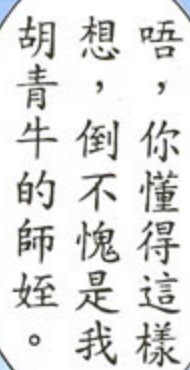 唔，你懂得這樣
想，倒不愧是我
胡青牛的師姪。